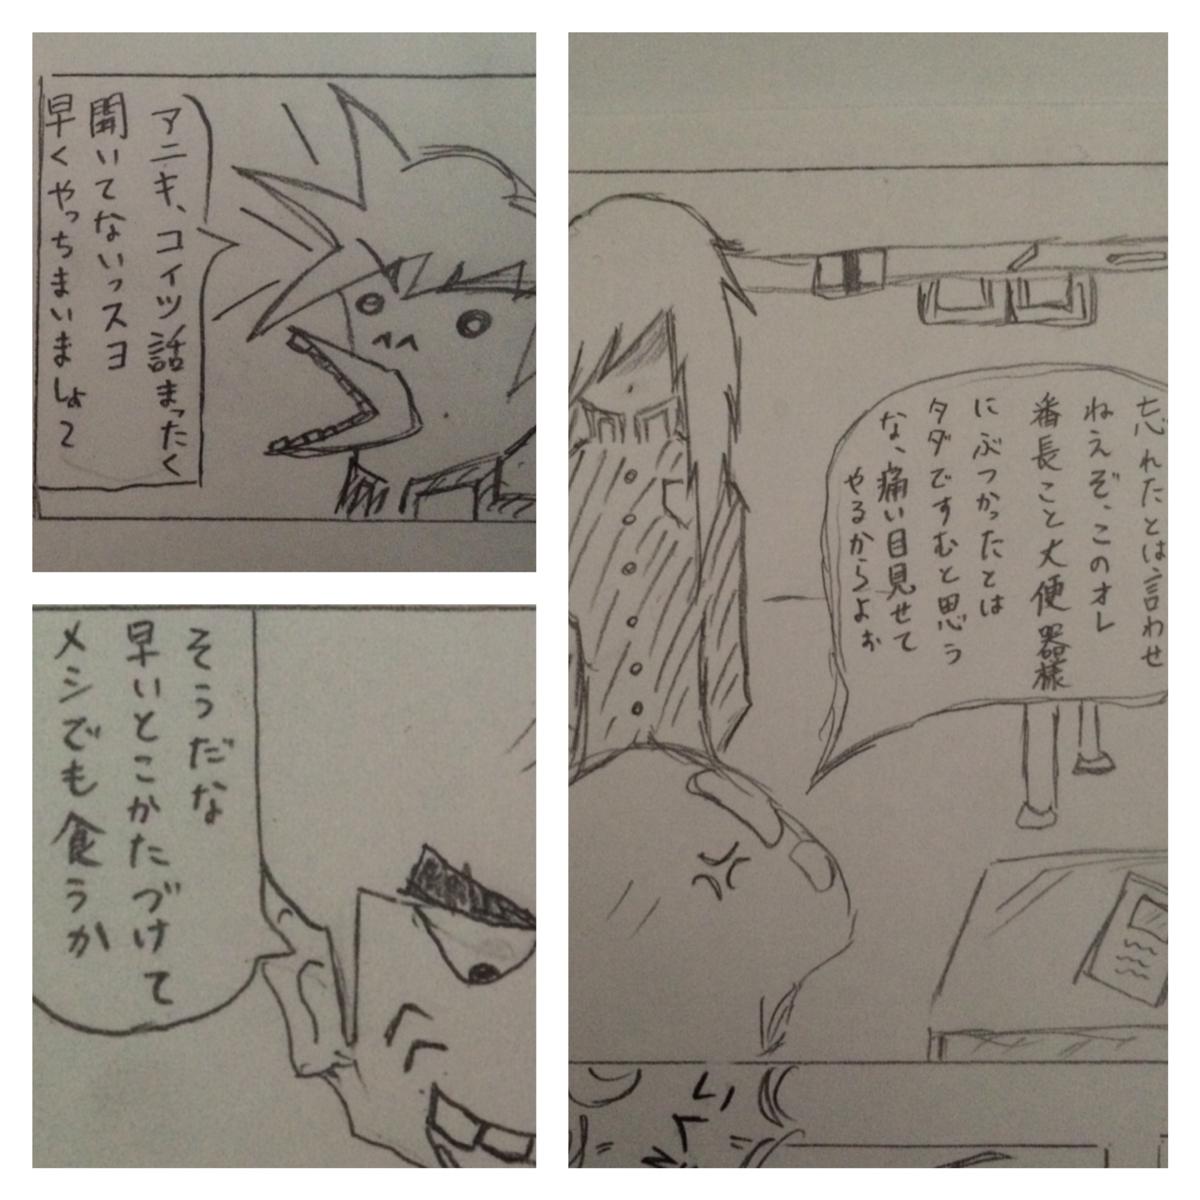 忘れたとは、言わせ
ねえぞ、このオレ
番長こと大便器様
にぶつかったとは
タダですむと思う
な、痛い目見せて
やるからよぉ
アニキ、コイツ話まったく
聞いてないっスヨ
早くやっちまいましょて
そうだな
早いとこかたづけて
メシでも食うか